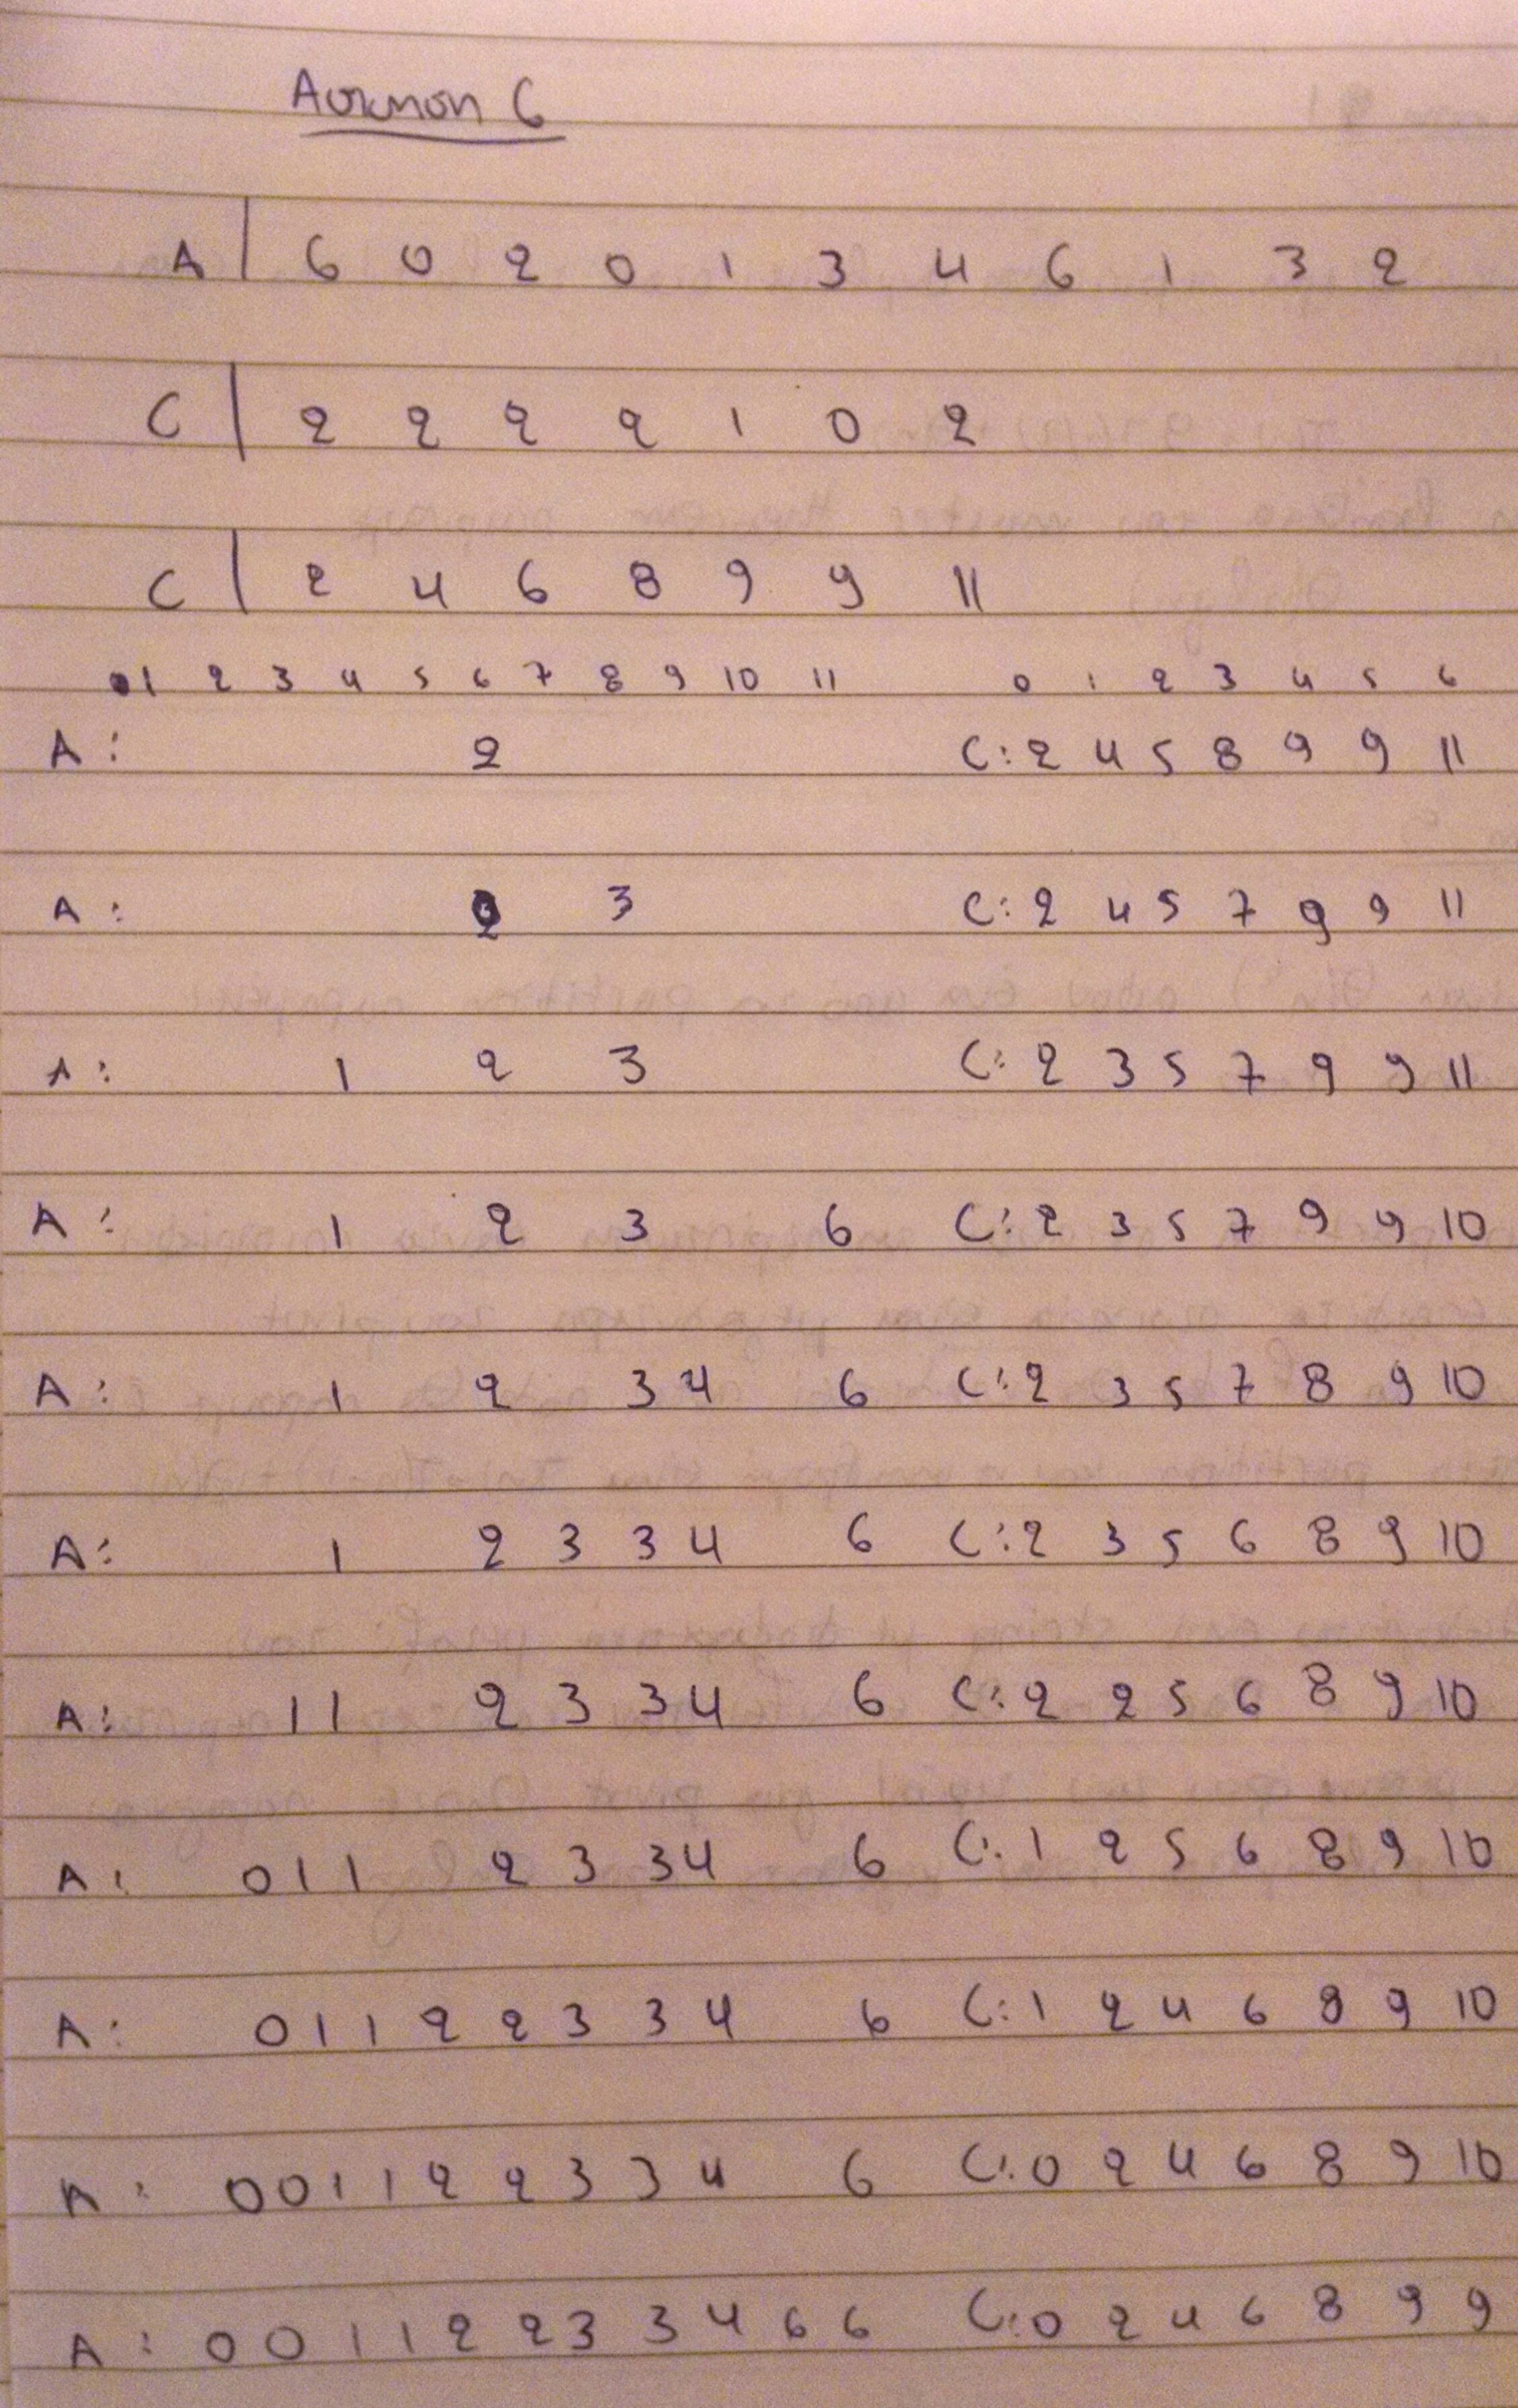 Άσκηση 6
A | 6 0 2 0 1 3 4 6 1 3 2
C | 2 2 2 2 1 0 2
C | 2 4 6 8 9 9 11
1 2 3 4 5 6 7 8 9 10 11 0 1 2 3 4 5 6
A: 2 C: 2 4 5 8 9 9 11
A: 2 3 C: 2 4 5 7 9 9 11
A: 1 2 3 C: 2 3 5 7 9 9 11
A: 1 2 3 6 C: 2 3 5 7 9 9 10
A: 1 2 3 4 6 C: 2 3 5 7 8 9 10
A: 1 2 3 3 4 6 C: 2 3 5 6 8 9 10
A: 1 1 2 3 3 4 6 C: 2 2 5 6 8 9 10
A: 0 1 1 2 3 3 4 6 C: 1 2 5 6 8 9 10
A: 0 1 1 2 2 3 3 4 6 C: 1 2 4 6 8 9 10
A: 0 0 1 1 2 2 3 3 4 6 C: 0 2 4 6 8 9 10
A: 0 0 1 1 2 2 3 3 4 6 6 C: 0 2 4 6 8 9 9